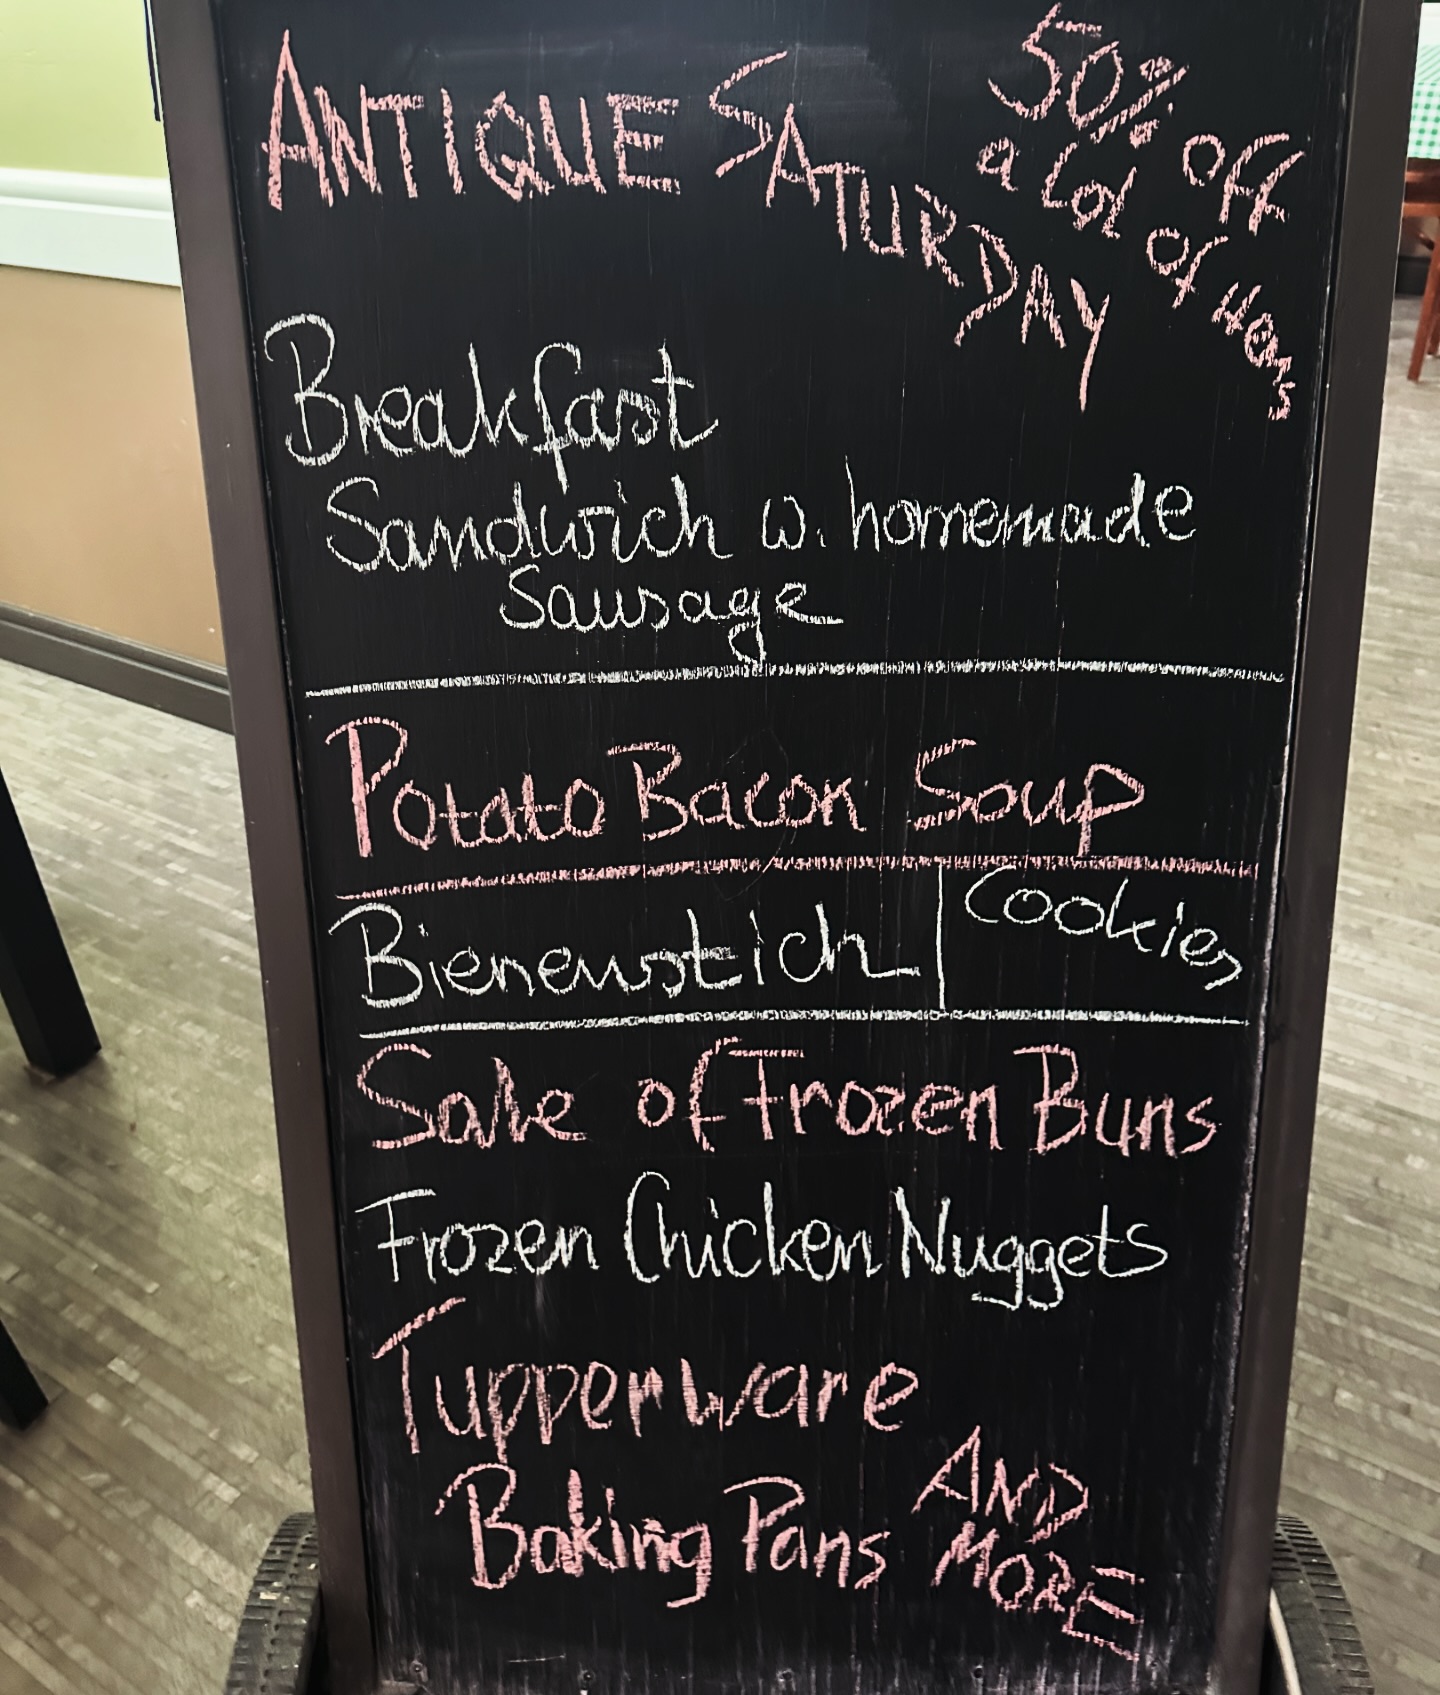 ANTIQUE SATURDAY
50% off
a lot of items
Breakfast
Sandwich w. homemade
Sausage
Potato Bacon Soup
Bienenstich
Cookies
Sale of Frozen Buns
Frozen Chicken Nuggets
Tupperware
Baking Pans
AND
MORE